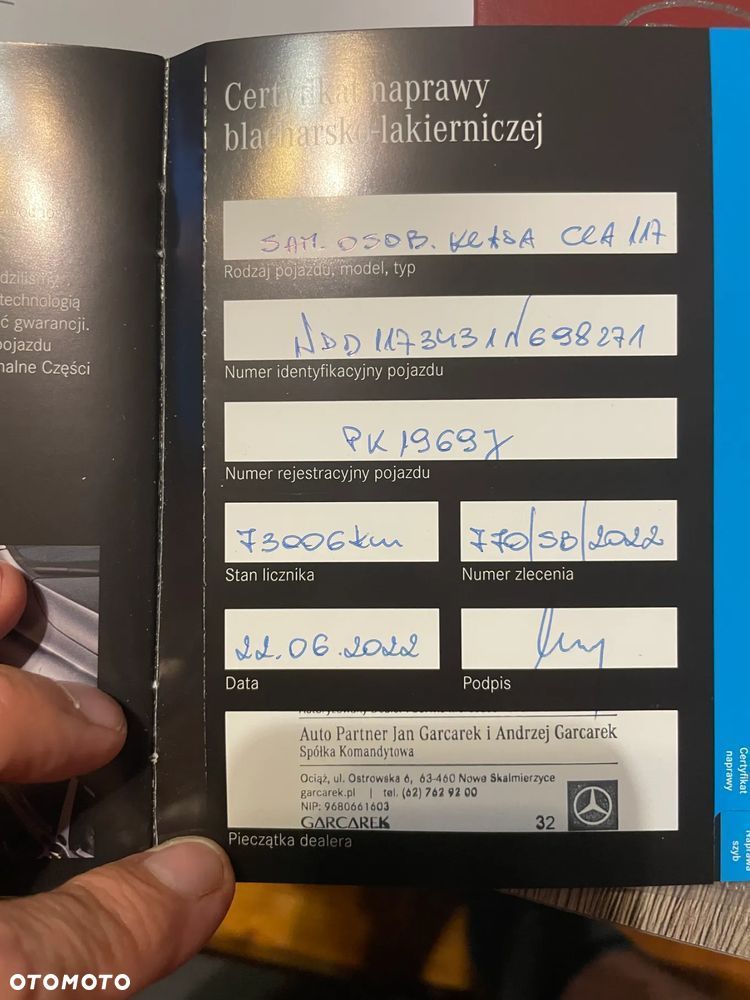 dziliśmy
technologią
ć gwarancji.
pojazdu
nalne Części
Certyfikat naprawy
blacharsko-lakierniczej
SAM. OSOB. KLASA CLA 117
Rodzaj pojazdu, model, typ
WDD1173431N698271
Numer identyfikacyjny pojazdu
PK 1969J
Numer rejestracyjny pojazdu
73006 km
770/SB/2022
Stan licznika
Numer zlecenia
22.06.2022
Data
Podpis
Auto Partner Jan Garcarek i Andrzej Garcarek
Spółka Komandytowa
Ociąż, ul. Ostrowska 6, 63-460 Nowe Skalmierzyce
garcarek.pl | tel. (62) 762 92 00
NIP: 9680661603
GARCAREK 32
Pieczątka dealera
Certyfikat
naprawy
Naprawa
szyb
OTOMOTO